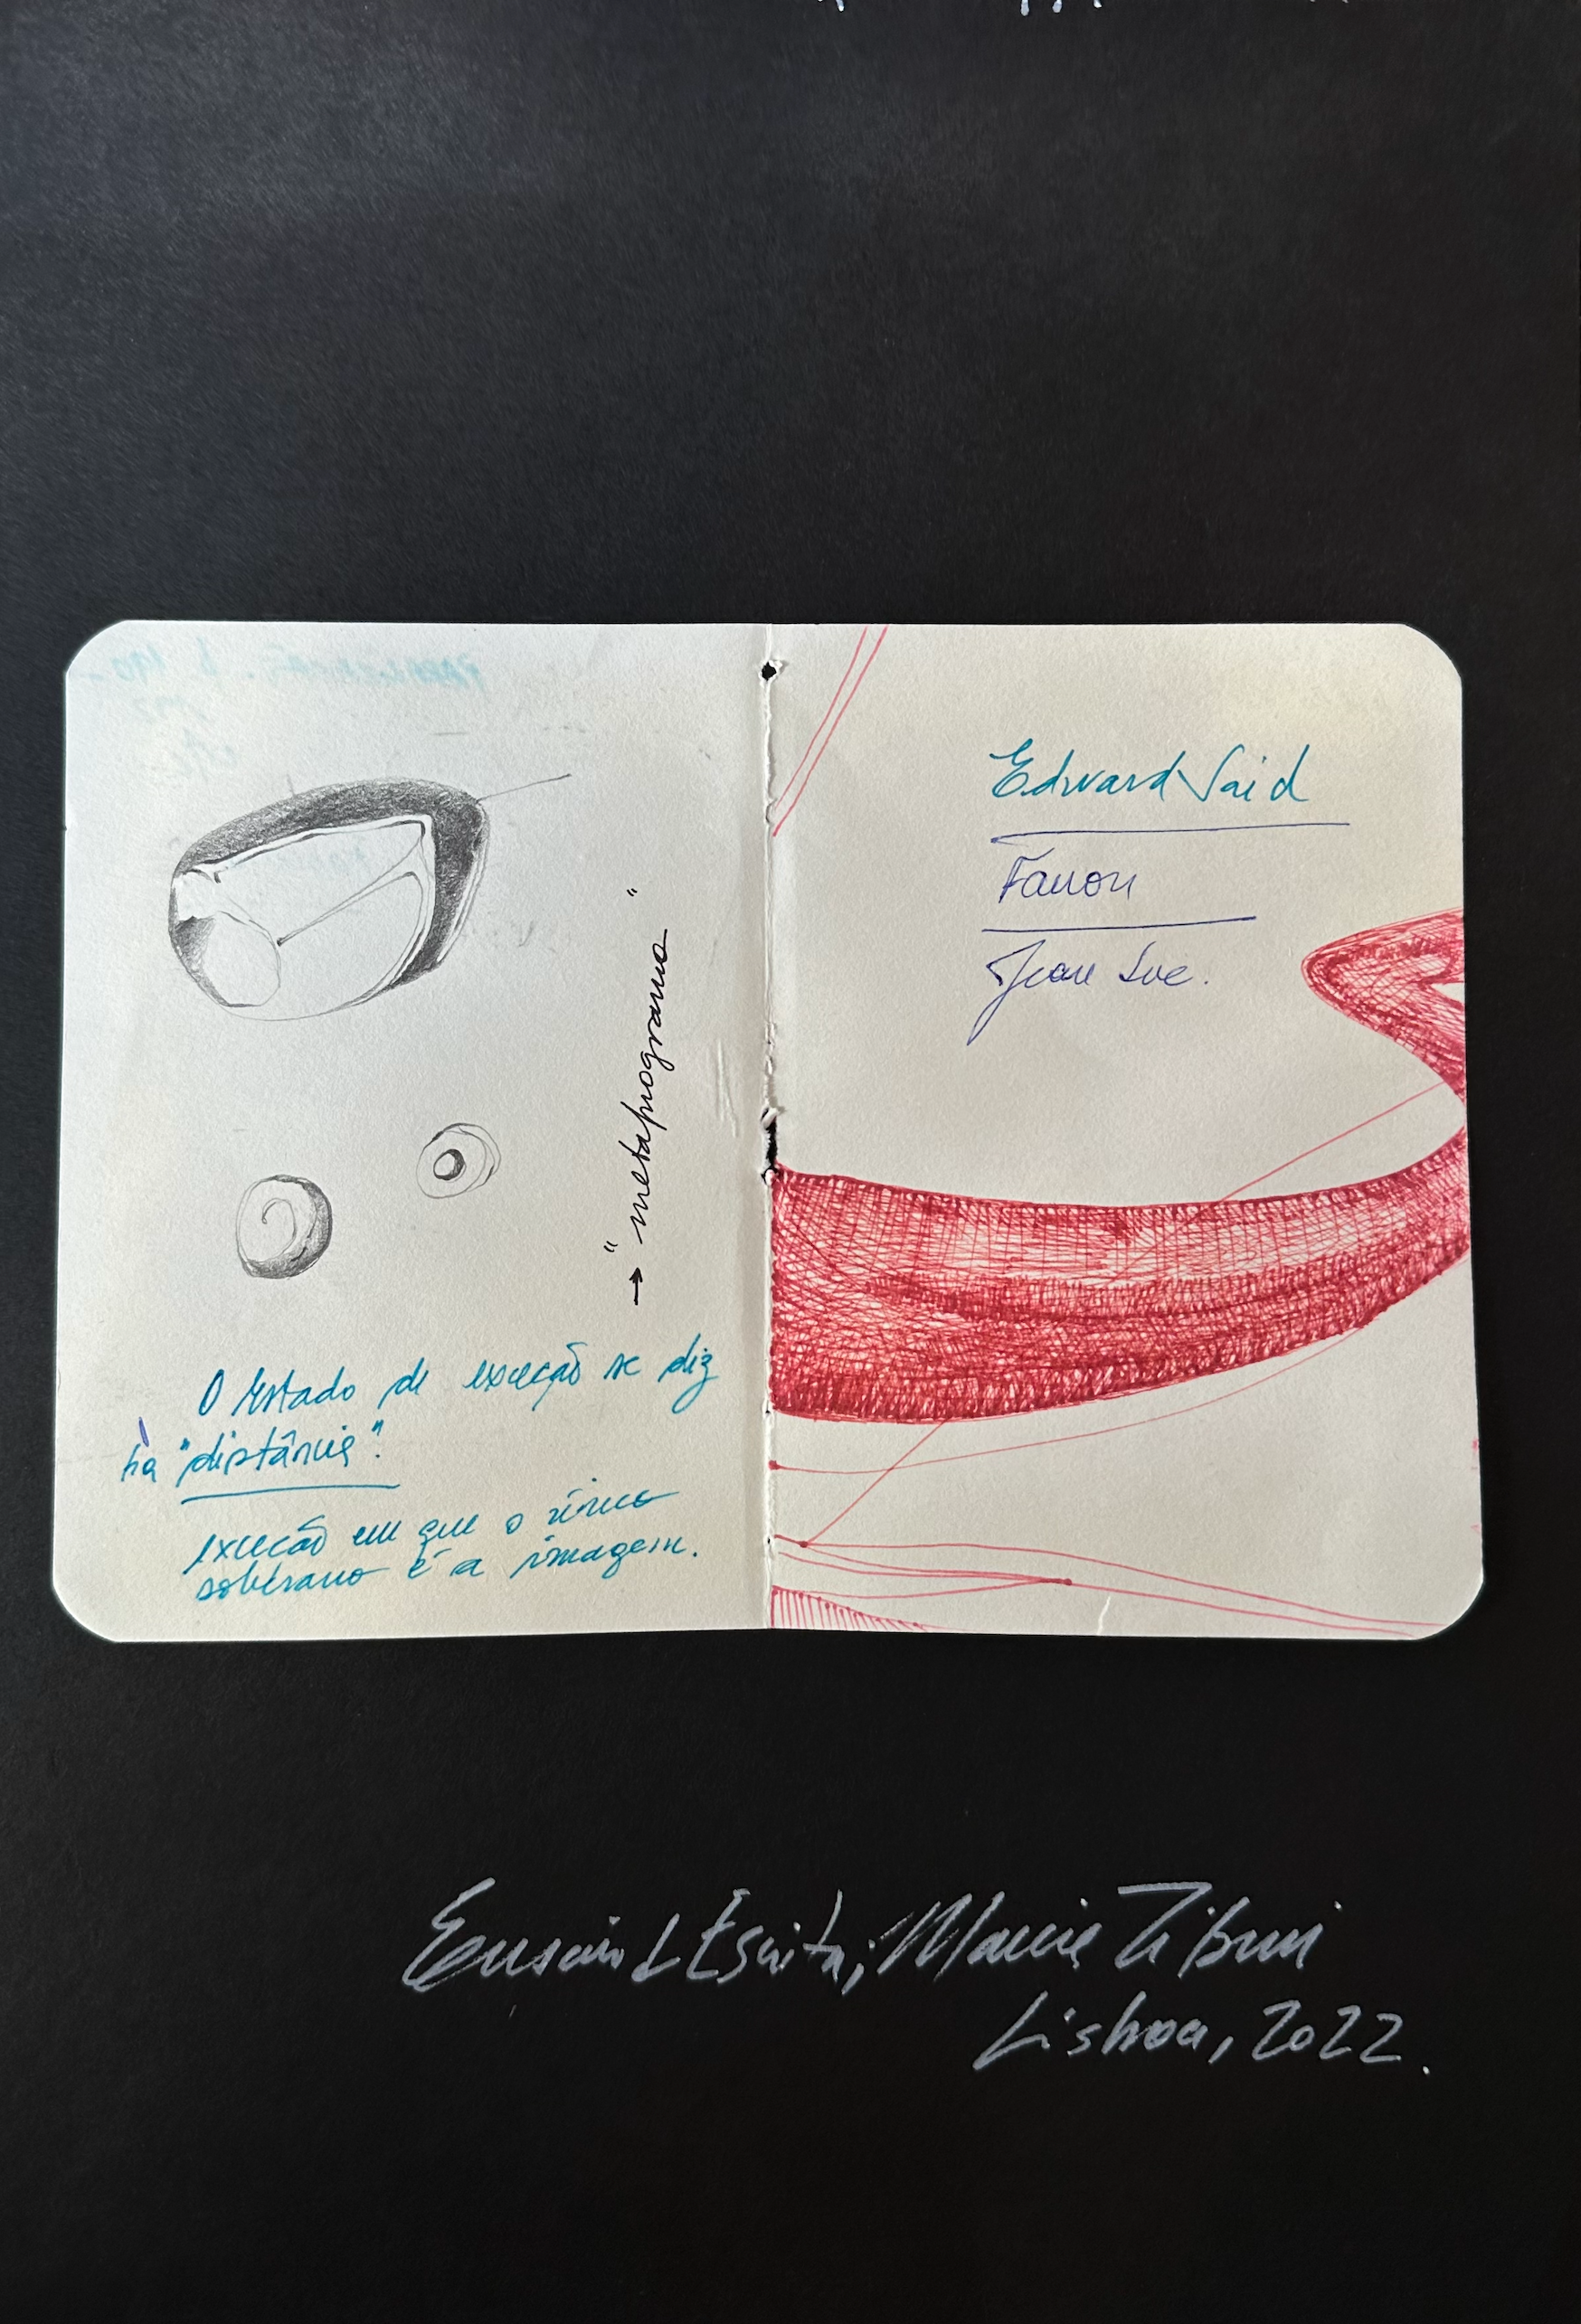 → "metaprograma"
O estado de exceção se diz
na "distância".
exceção em que o único
soberano é a imagem.
Edward Said
Fanon
Jean Luc.
Lisboa, 2022.